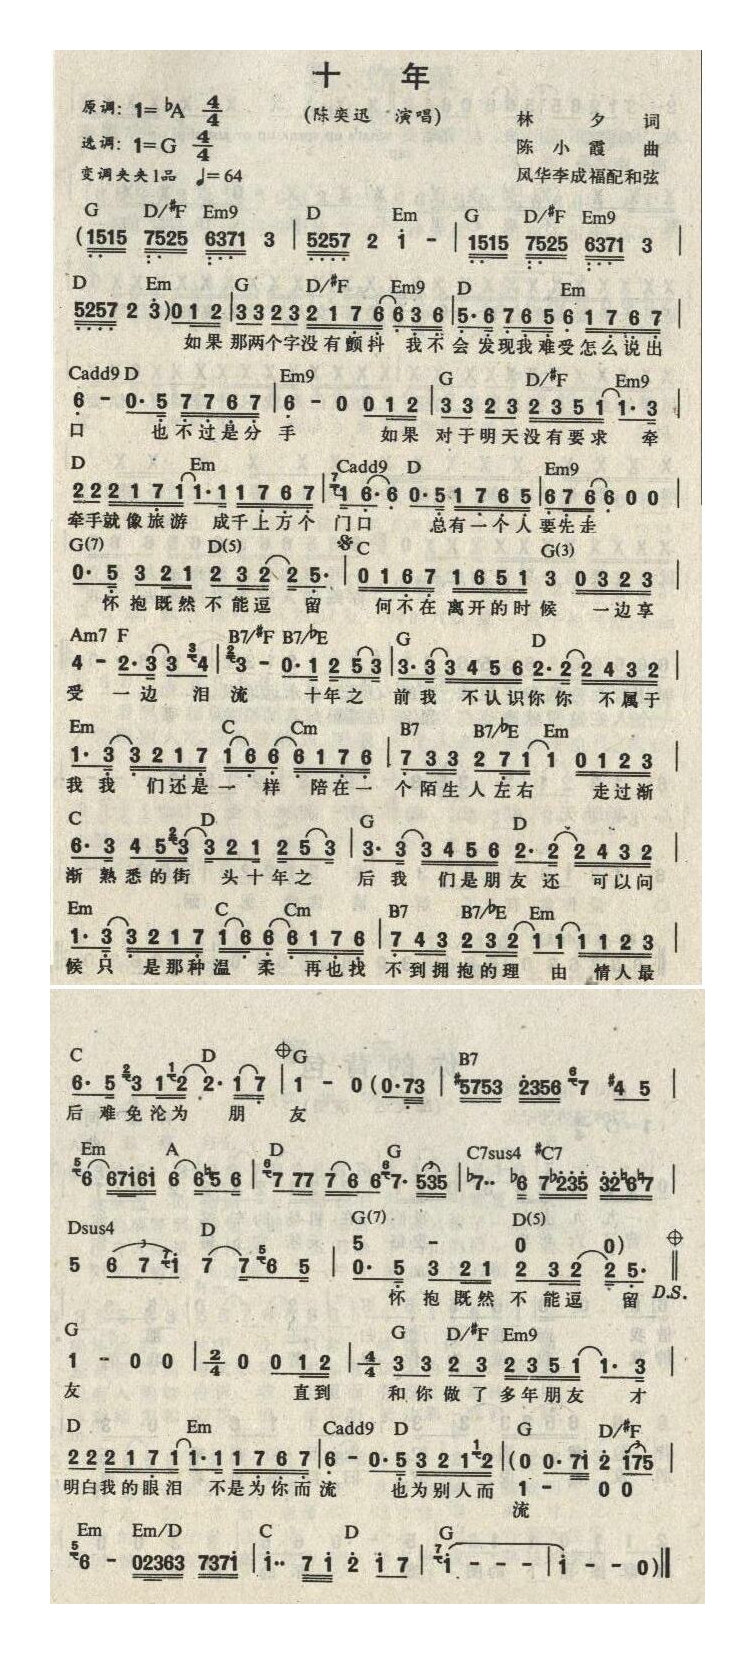 十 年
原调: 1=♭A 4/4
(陈奕迅 演唱)
林 夕 词
选调: 1=G 4/4
陈 小 霞 曲
变调夹夹1品 ♩=64
凤华李成福配和弦
G D/#F Em9 D Em G D/#F Em9
(1515 7525 6371 3 | 5257 2 i - | 1515 7525 6371 3 |
D Em G D/#F Em9 D Em
5257 2 3)0 1 2 | 3 3 2 3 2 1 7 6 6 3 6 | 5·6 7 6 5 6 1 7 6 7 |
如果 那两个字没有颤抖 我不会 发现我难受怎么说出
Cadd9 D Em9 G D/#F Em9
6 - 0·5 7 7 6 7 | 6 - 0 0 1 2 | 3 3 2 3 2 3 5 1 1·3 |
口 也不过是分 手 如果 对于明天没有要求 牵
D Em Cadd9 D Em9
2 2 2 1 7 1 1·1 1 7 6 7 | 7 1 6·6 0·5 1 7 6 5 | 6 7 6 6 0 0 |
牵手就像旅游 成千上万个 门口 总有一个人要先走
G(7) D(5) C G(3)
0·5 3 2 1 2 3 2 2 5· | 0 1 6 7 1 6 5 1 3 0 3 2 3 |
怀抱既然不能逗 留 何不在离开的时候 一边享
Am7 F B7/#F B7/♭E G D
4 - 2·3 3 3 4 | 2 3 - 0·1 2 5 3 | 3·3 3 4 5 6 2·2 2 4 3 2 |
受 一边 泪 流 十年之 前我 不认识你你 不属于
Em C Cm B7 B7/♭E Em
1·3 3 2 1 7 1 6 6 6 1 7 6 | 7 3 3 2 7 1 1 0 1 2 3 |
我我 们还是一 样 陪在一 个陌生人左右 走过渐
C D G D
6·3 4 5 2 3 3 2 1 2 5 3 | 3·3 3 4 5 6 2·2 2 4 3 2 |
渐熟悉的街 头十年之 后我 们是朋友还 可以问
Em C Cm B7 B7/♭E Em
1·3 3 2 1 7 1 6 6 6 1 7 6 | 7 4 3 2 3 2 1 1 1 1 2 3 |
候只 是那种温 柔 再也找 不到拥抱的理 由 情人最
C D G B7
6·5 2 3 1 1 2 2·1 7 | 1 - 0(0·73 | #5753 2356 6 7 #4 5 |
后难免沦为 朋 友
Em A D G C7sus4 #C7
5 6 67i6i 6 6♮5 6 | 6 7 77 7 6 6 6 7·535 | ♭7·· ♭6 7♭235 32♮6♮7 |
Dsus4 D G(7) D(5)
5 - 0 0)
5 6 7 7 i 7 7 5 6 5 | 0·5 3 2 1 2 3 2 2 5· ||
怀抱既然不能逗 留 D.S.
G G D/#F Em9
1 - 0 0 | 2/4 0 0 1 2 | 4/4 3 3 2 3 2 3 5 1 1·3 |
友 直到 和你做了多年朋友 才
D Em Cadd9 D G D/#F
2 2 2 1 7 1 1·1 1 7 6 7 | 6 - 0·5 3 2 1 1 2 | (0 0·7i 2 i75 |
明白我的眼泪 不是为你而流 也为别人而 1 - 0 0
流
Em Em/D C D G
5 6 - 02363 737i | i·· 7 i 2 i 7 | 7 i - - - | i - - 0)||